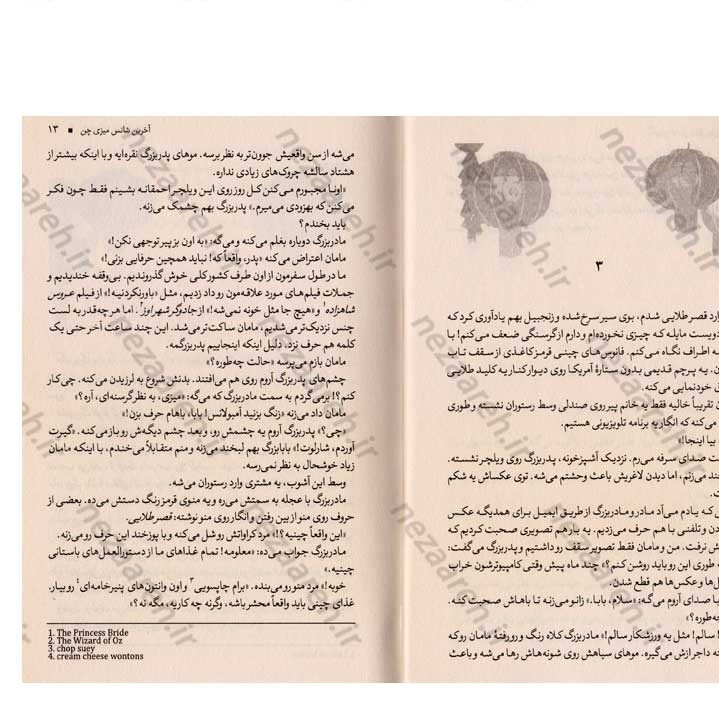 ۳
ارد قصر طلایی شدم، بوی سیر سرخ شده و زنجبیل بهم یادآوری کرد که
دویست مایله که چیزی نخورده‌ام و دارم از گرسنگی ضعف می‌کنم! با
ه اطراف نگاه می‌کنم. فانوس‌های چینی قرمز کاغذی از سقف تاب
ن. یه پرچم قدیمی بدون ستارهٔ آمریکا روی دیوار کنار یه کلید طلایی
ی خودنمایی می‌کنه.
ن تقریباً خالیه فقط یه خانم پیر روی صندلی وسط رستوران نشسته و طوری
می‌کنه که انگار یه برنامه تلویزیونی هستیم.
بیا اینجا!»
ت صدای سرفه می‌رم. نزدیک آشپزخونه، پدربزرگ روی ویلچر نشسته.
خند می‌زنم، اما دیدن لاغریش باعث وحشتم می‌شه. توی عکساش یه شکم
ت.
ی که یادم می‌آد مادر و مادربزرگ از طریق ایمیل برای همدیگه عکس
دن و تلفنی با هم حرف می‌زدیم. یه بار هم تصویری صحبت کردیم که
ش نرفت. من و مامان فقط تصویر سقف رو داشتیم و پدربزرگ می‌گفت:
ه طوری این رو باید روشن کنم؟» چند ماه پیش وقتی کامپیوترشون خراب
ل‌ها و عکس‌ها هم قطع شدن.
ا صدای آروم می‌گه: «سلام، بابا.» زانو می‌زنه تا باهاش صحبت کنه.
چه‌طوره؟»
! سالم! مثل یه ورزشکار سالم!» مادربزرگ کلاه رنگ و رورفتهٔ مامان رو که
ته داجرازش می‌گیره. موهای سیاهش روی شونه‌هاش رها می‌شه و باعث
آخرین شانس میزی چن ■ ۱۳
می‌شه از سن واقعیش جوون‌تر به نظر برسه. موهای پدربزرگ نقره‌ایه و با اینکه بیشتر از
هشتاد سالشه چروک‌های زیادی نداره.
«اونا مجبورم می‌کنن کل روز روی این ویلچر احمقانه بشینم فقط چون فکر
می‌کنن که به‌زودی می‌میرم.» پدربزرگ بهم چشمک می‌زنه.
باید بخندم؟
مادربزرگ دوباره بغلم می‌کنه و می‌گه: «به اون بز پیر توجهی نکن!»
مامان اعتراض می‌کنه «پدر، واقعاً که! نباید همچین حرفایی بزنی!»
ما در طول سفرمون از اون طرف کشور کلی خوش گذروندیم. بی‌وقفه خندیدیم و
جملات فیلم‌های مورد علاقه‌مون رو داد زدیم، مثل «باورنکردنیه!» از فیلم عروس
شاهزاده۱ و «هیچ جا مثل خونه نمی‌شه!» از جادوگر شهر اوز۲. اما هر چه‌قدر به لست
چنس نزدیک‌تر می‌شدیم، مامان ساکت‌تر می‌شد. این چند ساعت آخر حتی یک
کلمه هم حرف نزد. دلیل اینکه اینجاییم پدربزرگمه.
مامان بازم می‌پرسه «حالت چه‌طوره؟»
چشم‌های پدربزرگ آروم روی هم می‌افتند. بدنش شروع به لرزیدن می‌کنه. چی کار
کنم؟! برمی‌گردم به سمت مادربزرگ که می‌گه: «میزی، به نظر گرسنه‌ای، آره؟»
مامان داد می‌زنه «زنگ بزنید آمبولانس! بابا، باهام حرف بزن!»
«چی؟» پدربزرگ آروم یه چشمش رو، و بعد چشم دیگه‌ش رو باز می‌کنه. «گیرت
آوردم، شارلوت!» بابابزرگ بهم لبخند می‌زنه و منم متقابلاً می‌خندم، با اینکه مامان
زیاد خوشحال به نظر نمی‌رسه.
وسط این آشوب، یه مشتری وارد رستوران می‌شه.
مادربزرگ با عجله به سمتش می‌ره و یه منوی قرمز رنگ دستش می‌ده. بعضی از
حروف روی منو از بین رفتن و انگار روی منو نوشته: قصر طلایی.
«این واقعاً چینیه؟!» مرد کراواتش رو شل می‌کنه و با پوزخند این حرف رو می‌زنه.
مادربزرگ جواب می‌ده: «معلومه! تمام غذاهای ما از دستورالعمل‌های باستانی
چینیه.»
خوبه!» مرد منو رو می‌بنده. «برام چاپسویی۳ و اون وانتون‌های پنیر خامه‌ای۴ رو بیار.
غذای چینی باید واقعاً محشر باشه، وگرنه چه کاریه، مگه نه؟»
1. The Princess Bride
2. The Wizard of Oz
3. chop suey
4. cream cheese wontons
nezaareh.ir